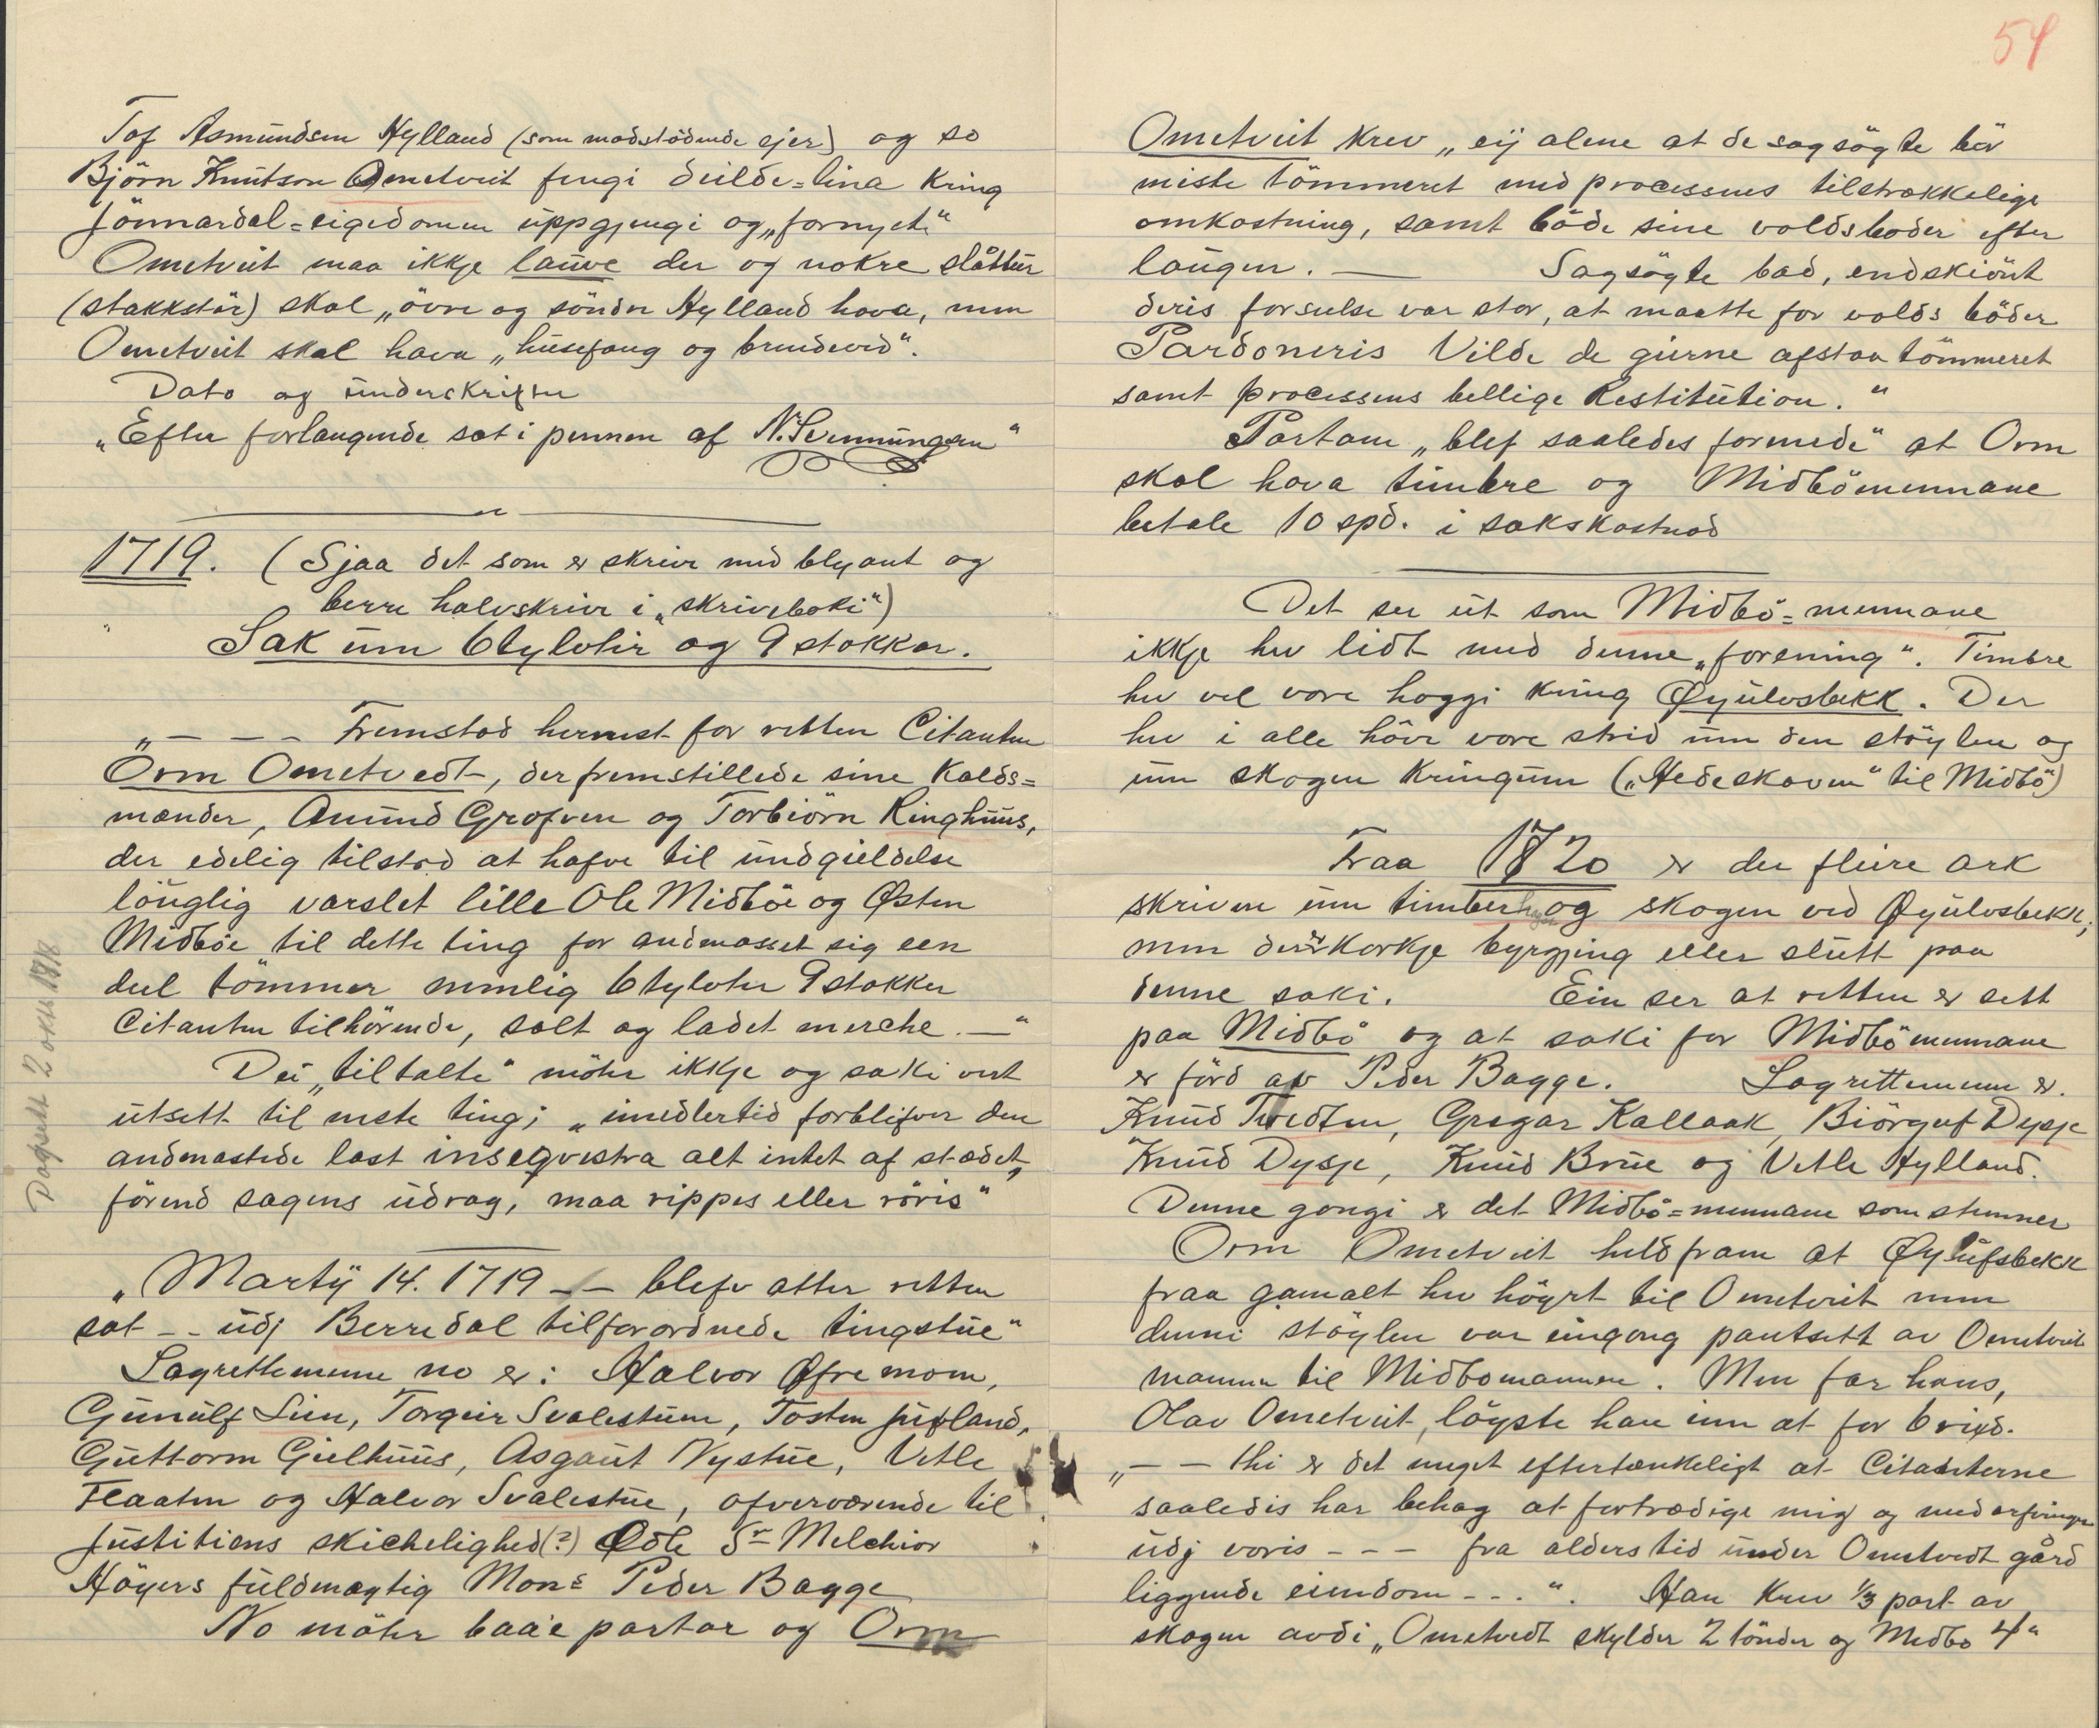 Tof Asmundsen Hylland (som modstödende ejer) og so
Björn Knutson Ometveit fengi deilde=lina kring
Jönnardal=eigedomen uppgjengi og „fornyet“
Ometveit maa ikkje lauve der og nokre slåttur
(stakkstör) skal „övre og söndre Hylland hava, men
Ometveit skal hava „husefang og brendeved“.
Dato og underskrifter
„Efter forlangende sat i pennen af N. Svennungsen“
1719. (Sjaa det som er skrive med blyant og
berre halvskrive i „skriveboki“)
Sak um 6 tylvtir og 9 stokkar.
„— – – Fremstod hernest for retten Citanten
Orm Ometvedt, der fremstillede sine Kalds=
mænder, Anund Grofven og Torbiörn Ringhuus,
der edelig tilstod at hafve til undgieldelse
löuglig varslet lille Ole Midböe og Østen
Midböe til dette ting for andmasset sig een
deel tömmer nemlig 6 tylvter 9 stokker
Citanten tilhörende, solt og ladet merche. —“
Dei „tiltalte“ möter ikkje og saki vert
utsett til neste ting; „imedlertid forblifver den
andmastede last inseqvestra alt intet af stædet,
förend sagens udrag, maa rippes eller röris“
„Martÿ 14. 1719 – – blefv atter retten
sat – – udj Berredal tilforordnede tingstue“
Lagrettemenne no er: Halvor Øfre mom,
Gunulf Lien, Torgeir Svalestuen, Tosten Jufland,
Guttorm Gielhuus, Asgaut Nystue, Vetle
Flaaten og Halvor Svalestue, ofverværende til
Justitiens skichelighed(?) Edle Sr Melchior
Höyers fuldmægtig Mons Peder Bagge
No möter baae partar og Orm
Dagsett 2 okt 1718
54
Ometveit krev „eij alene at de sagsögte bör
miste tömmeret med processens tilstrækkelige
omkostning, samt böde sine voldsboder efter
laugen. — Sagsögte bad, endskiönt
deris forseelse var stor, at maatte for volds böder
Pardoneris Vilde de gierne afstaa tömmeret
samt processens bellige Restitution.“
Partane „blef saaledes formede“ at Orm
skal hava timbre og Midbömennane
betale 10 spd. i sakskostnad
Det ser ut som Midbö=mennane
ikkje hev lidt med denne „forening“. Timbre
hev vel vore hoggi kring Øyulvsbekk. Der
hev i alle höve vore strid um den stöylen og
um skogen kringum („Hedeskoven“ til Midbö)
Fraa 1720 er der fleire ark
skriven um timberhogst og skogen ved Øyulvsbekk,
men der er korkje byrgjing eller slutt paa
denne saki. Ein ser at retten er sett
paa Midbö og at saki for Midbömennane
er förd av Peder Bagge. Lagrettemenn er.
Knud Tvedten, Gregar Kallaak, Biörguf Dysje
Knud Dysje, Knud Brue og Vetle Hylland.
Denne gongi er det Midbö=mennane som stemner
Orm Ometveit held fram at Øyulfsbekk
fraa gamalt hev höyrt til Ometveit men
denne stöylen var eingong pantsett av Ometveit
mannen til Midbomannen. Men far hans,
Olav Ometveit, löyste han inn at for 6 rixd.
„— – thi er det meget eftertænkeligt at Citanterne
saaledis har behag at fortrædige mig og medarfvinger
udj voris – – – fra alderstid under Ometvedt gård
liggende eiendom – – .“. Han krev 1/3 part av
skogen avdi „Ometvedt skylder 2 tönder og Medbo 4“